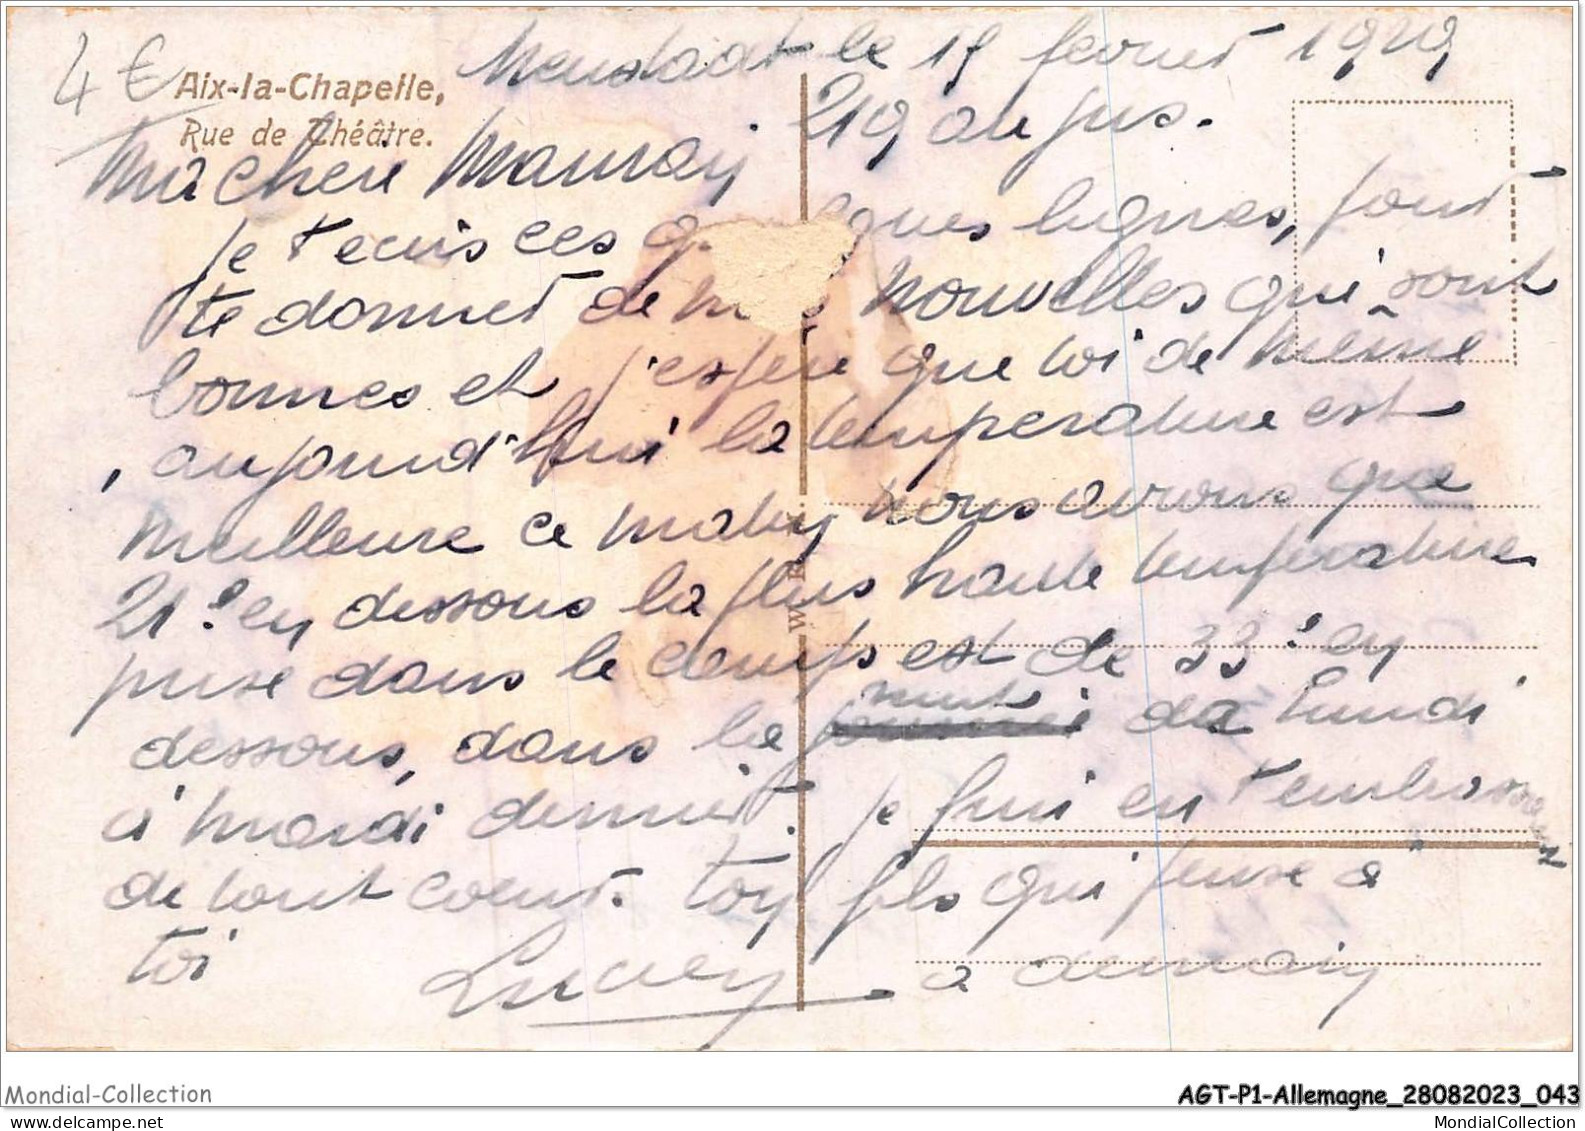 4 €
Aix-la-Chapelle,
Rue de Théâtre.
le 15 fevrier 1929
219 au jus.
Ma cherie Maman
je t'ecris ces q ques lignes, pour
te donner de m s nouvelles qui sont
bonnes et j'espere que toi de même
, aujourd'hui la temperature est
meilleure ce matin nous avons que
21° en dessous la plus haute temperature
prise dans le camps est de 33° en
dessous, dans la nuit da Lundi
à mardi dernier. je fini en t'embrassant
de tout coeur. ton fils qui pense a
toi Lucien a demain
Mondial-Collection
AGT-P1-Allemagne_28082023_043
MondialCollection